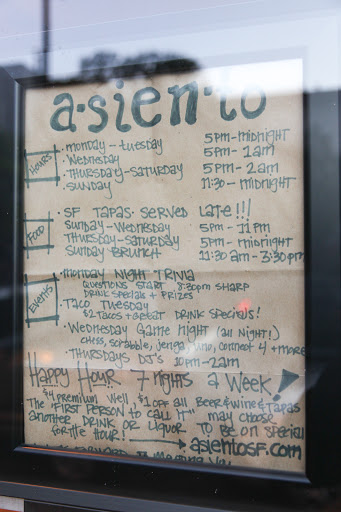 a·sien·to
Hours
• Monday - Tuesday 5pm - midnight
• Wednesday 5pm - 1am
• Thursday - Saturday 5pm - 2am
• Sunday 11:30 - midnight
Food
• SF Tapas served late!!!
Sunday - Wednesday 5pm - 11pm
Thursday - Saturday 5pm - midnight
Sunday Brunch 11:30 am - 3:30pm
Events
• Monday Night Trivia
Questions start 8:30pm sharp
Drink specials + prizes
• Taco Tuesday
$2 Tacos + great drink specials!
• Wednesday Game Night (all night!)
chess, scrabble, jenga, uno, connect 4 + more
• Thursdays DJ's 10pm - 2am
Happy Hour 7 nights a week!
$4 premium well $1 off all Beer & Wine & Tapas
The "First person to call it" may choose
another drink or liquor to be on special
for the hour! → asientosf.com